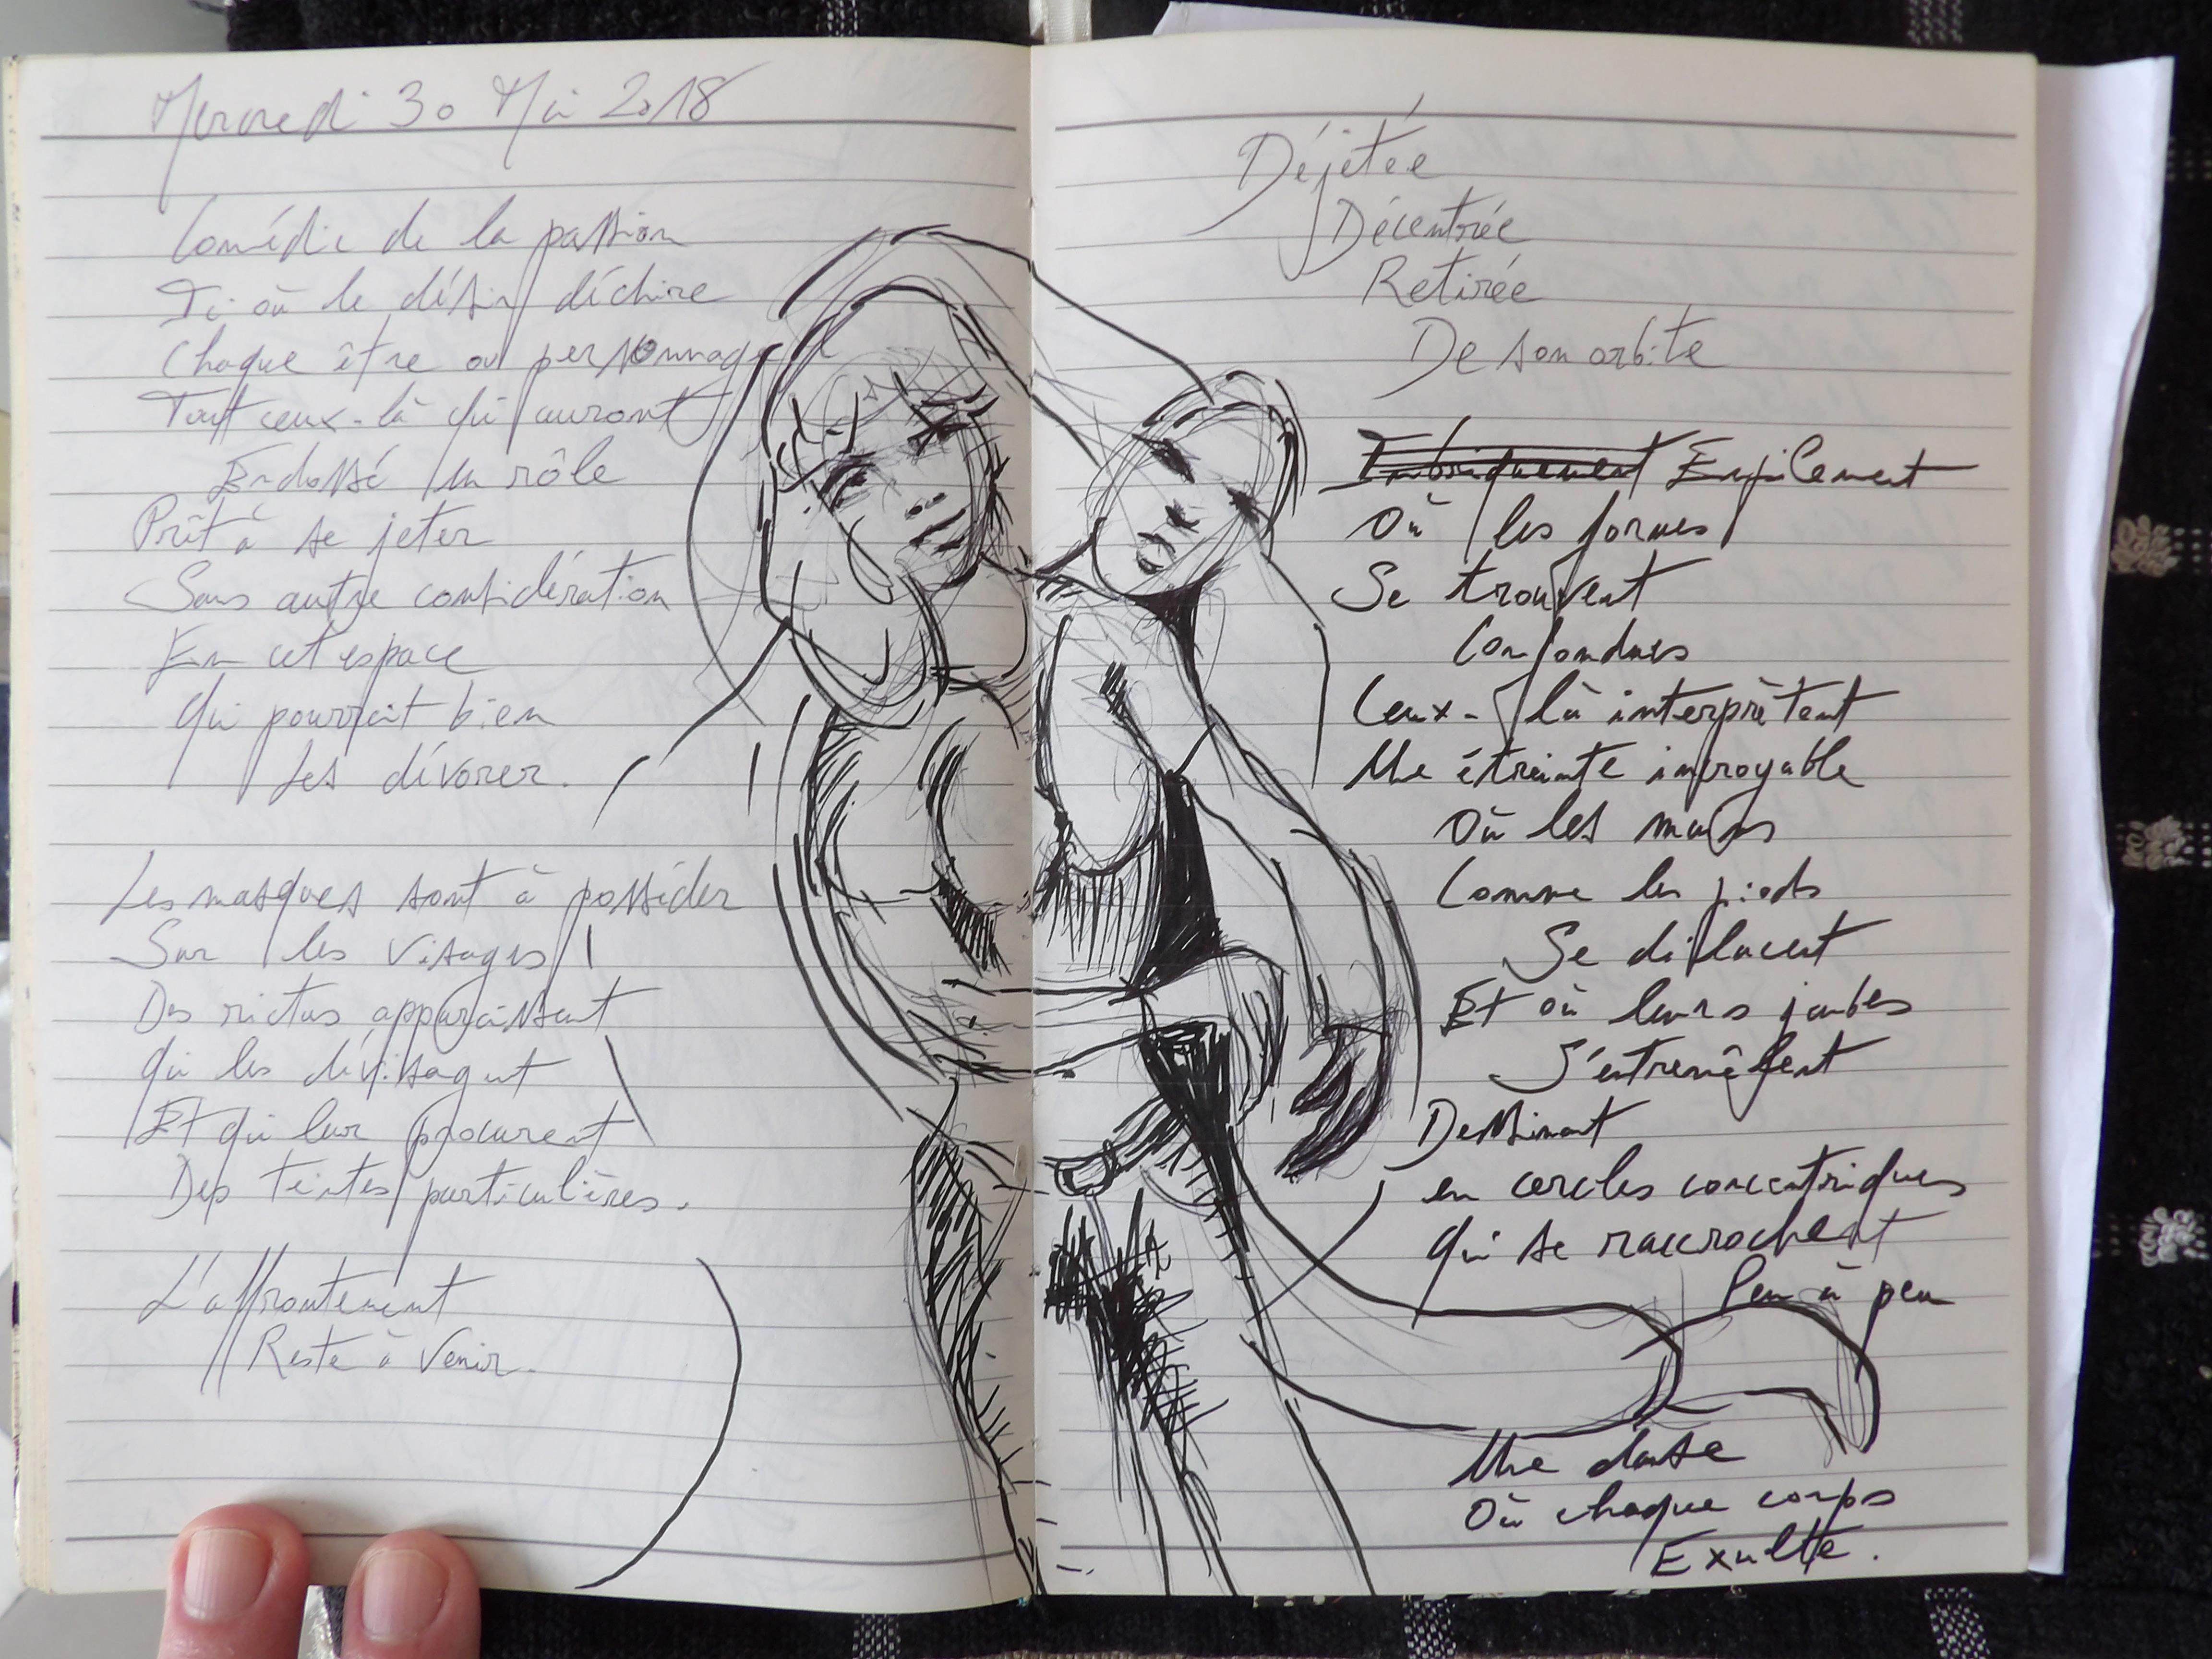 Mercredi 30 Mai 2018
Comédie de la passion
Ici où le désir déchire
Chaque être ou personnage
Tout ceux-là qui auront
Endossé un rôle
Prêt à se jeter
Sans autre considération
En cet espace
Qui pourrait bien
Les dévorer.
Les masques sont à posséder
Sur les visages
Des rictus apparaissent
Qui les dévisagent
Et qui leur procurent
Des teintes particulières.
L'affrontement
Reste à venir.
Déjetée
Décentrée
Retirée
De son orbite
Imbriquement Empilement
Où les formes
Se trouvent
Confondues
Ceux-là interprètent
Une étreinte incroyable
Où les mains
Comme les pieds
Se déplacent
Et où leurs jambes
S'entremêlent
Dessinant
en cercles concentriques
Qui se raccrochent
Peu à peu
Une danse
Où chaque corps
Exulte.